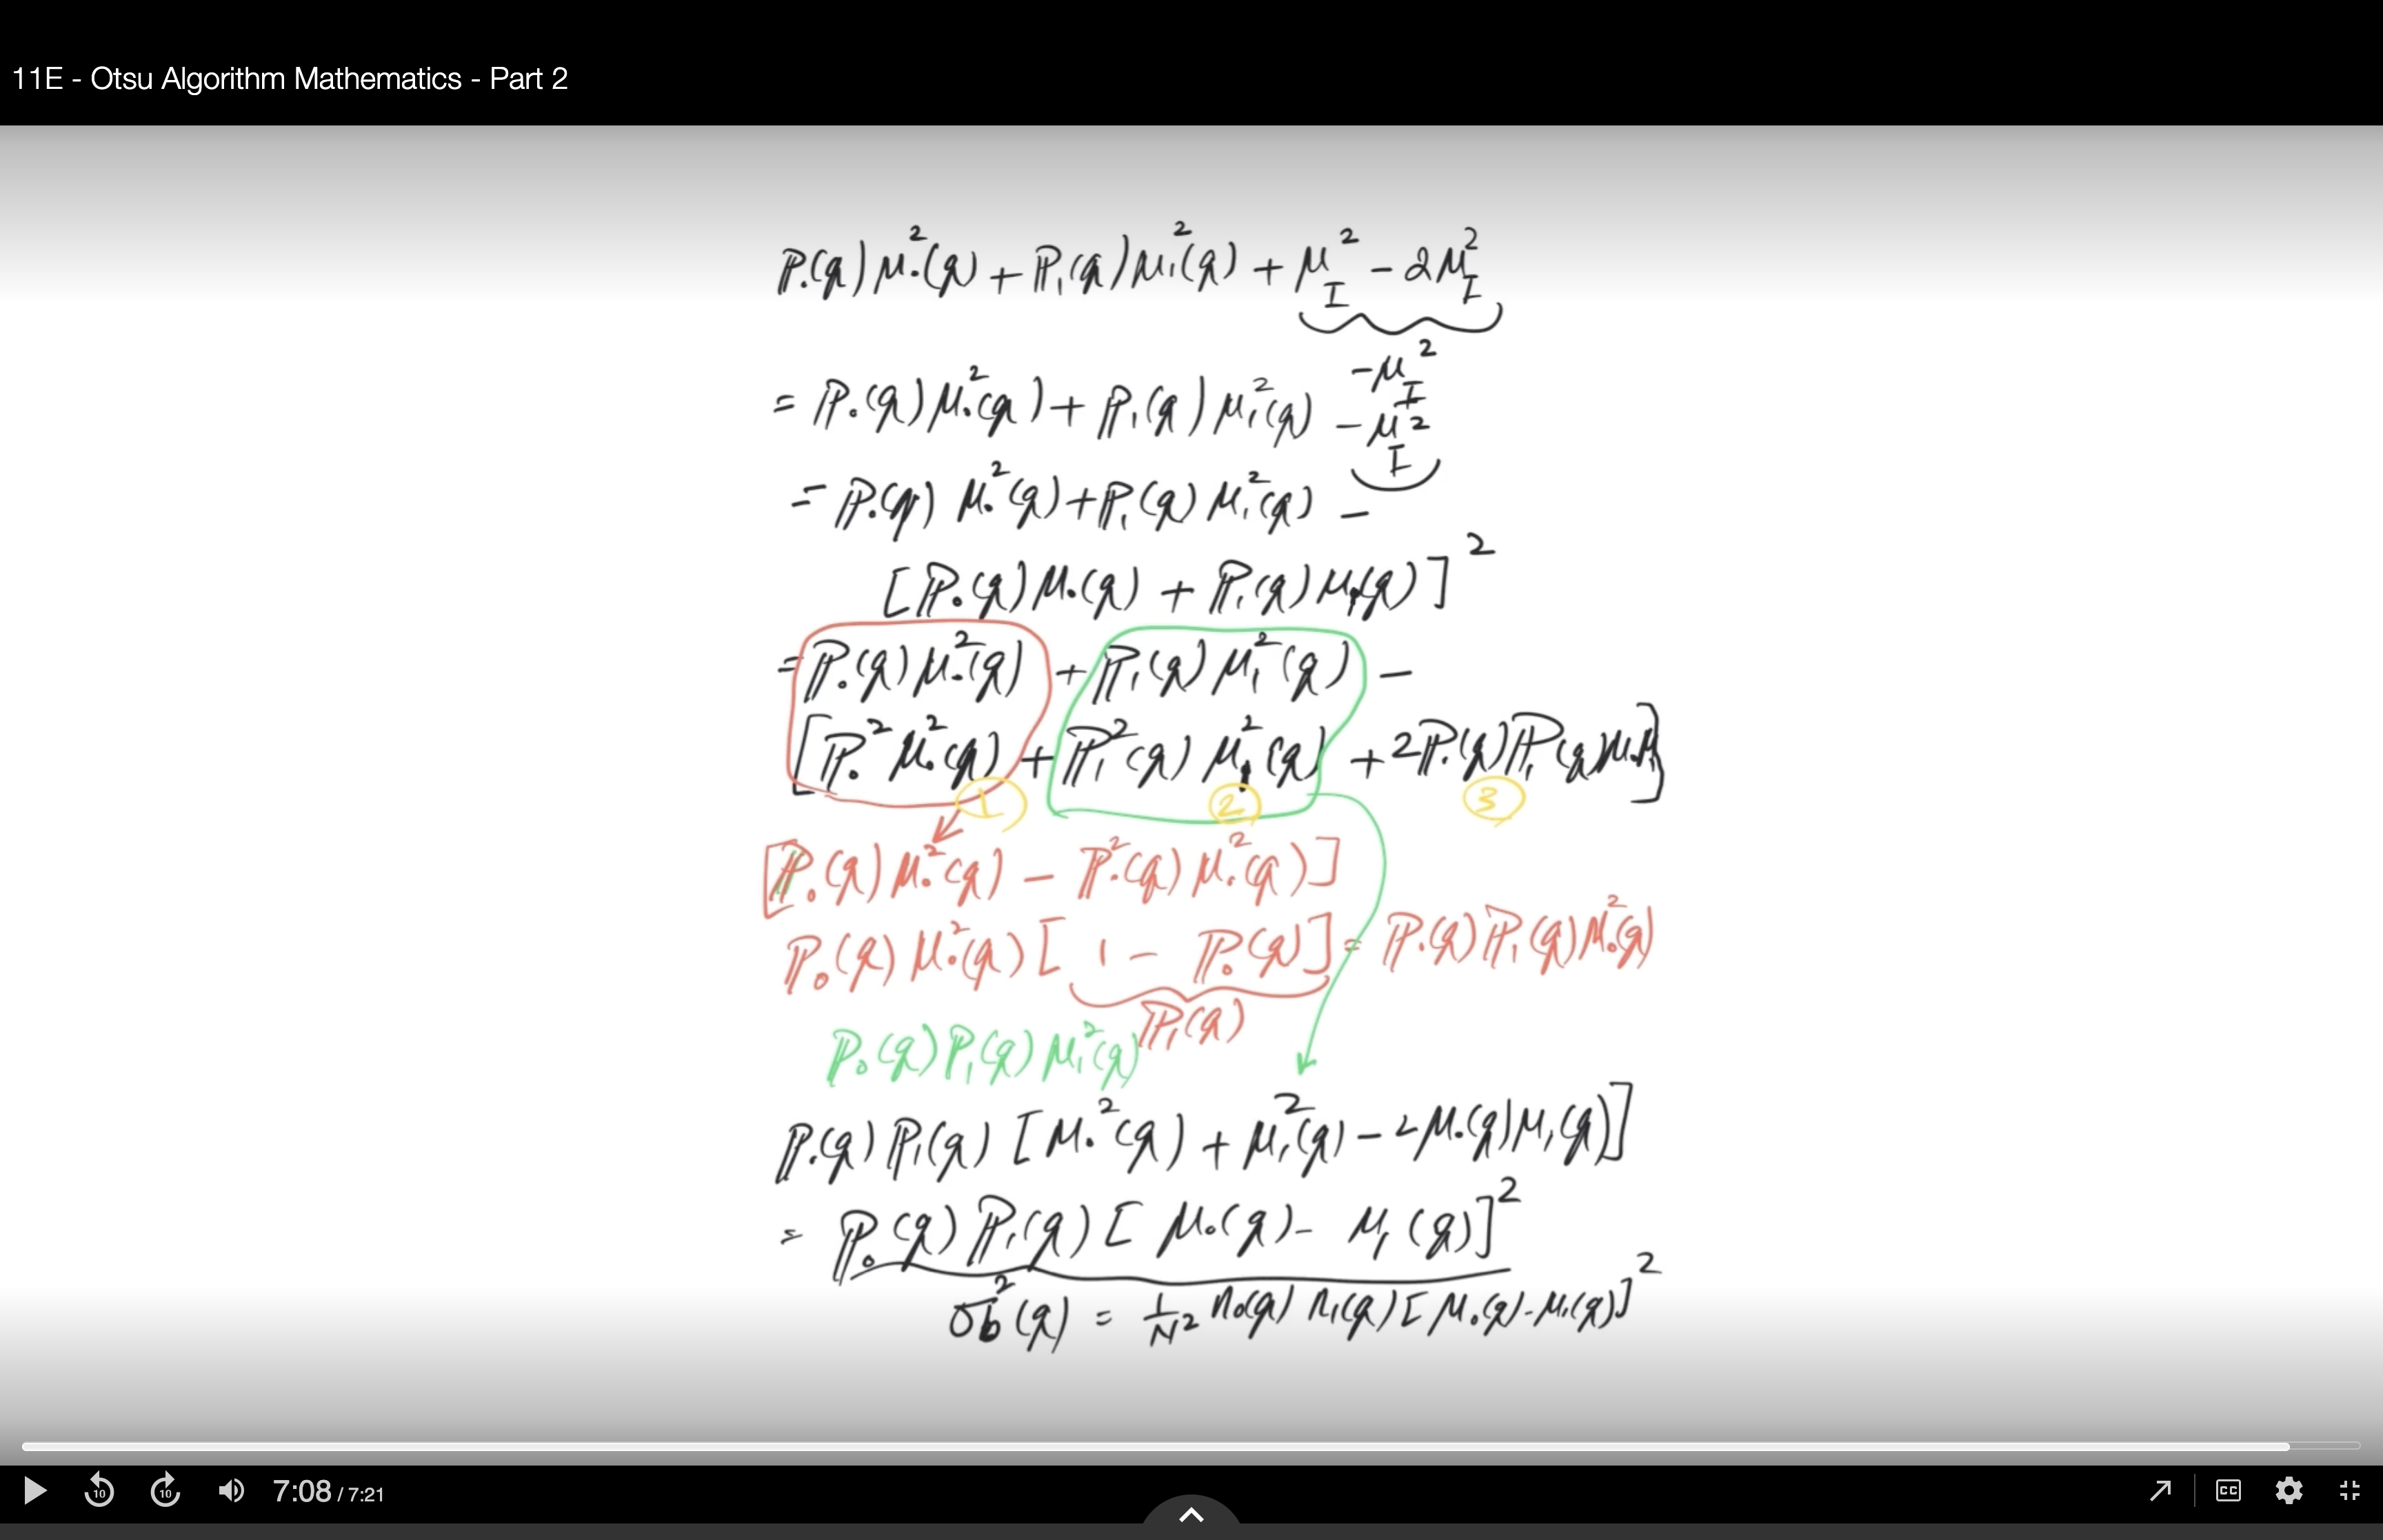 11E - Otsu Algorithm Mathematics - Part 2
P₀(q) μ₀²(q) + P₁(q) μ₁²(q) + μ_I² - 2μ_I²
-μ_I²
= P₀(q) μ₀²(q) + P₁(q) μ₁²(q) - μ_I²
= P₀(q) μ₀²(q) + P₁(q) μ₁²(q) -
[P₀(q) μ₀(q) + P₁(q) μ₁(q)]²
= P₀(q) μ₀²(q) + P₁(q) μ₁²(q) -
[P₀² μ₀²(q) + P₁²(q) μ₁²(q) + 2P₀(q) P₁(q) μ₀μ₁]
1 2 3
[P₀(q) μ₀²(q) - P₀²(q) μ₀²(q)]
P₀(q) μ₀²(q) [1 - P₀(q)] = P₀(q) P₁(q) μ₀²(q)
P₁(q)
P₀(q) P₁(q) μ₁²(q)
P₀(q) P₁(q) [μ₀²(q) + μ₁²(q) - 2μ₀(q) μ₁(q)]
= P₀(q) P₁(q) [μ₀(q) - μ₁(q)]²
σb²(q) = 1/N² n₀(q) n₁(q) [μ₀(q) - μ₁(q)]²
10 10 7:08 / 7:21 CC